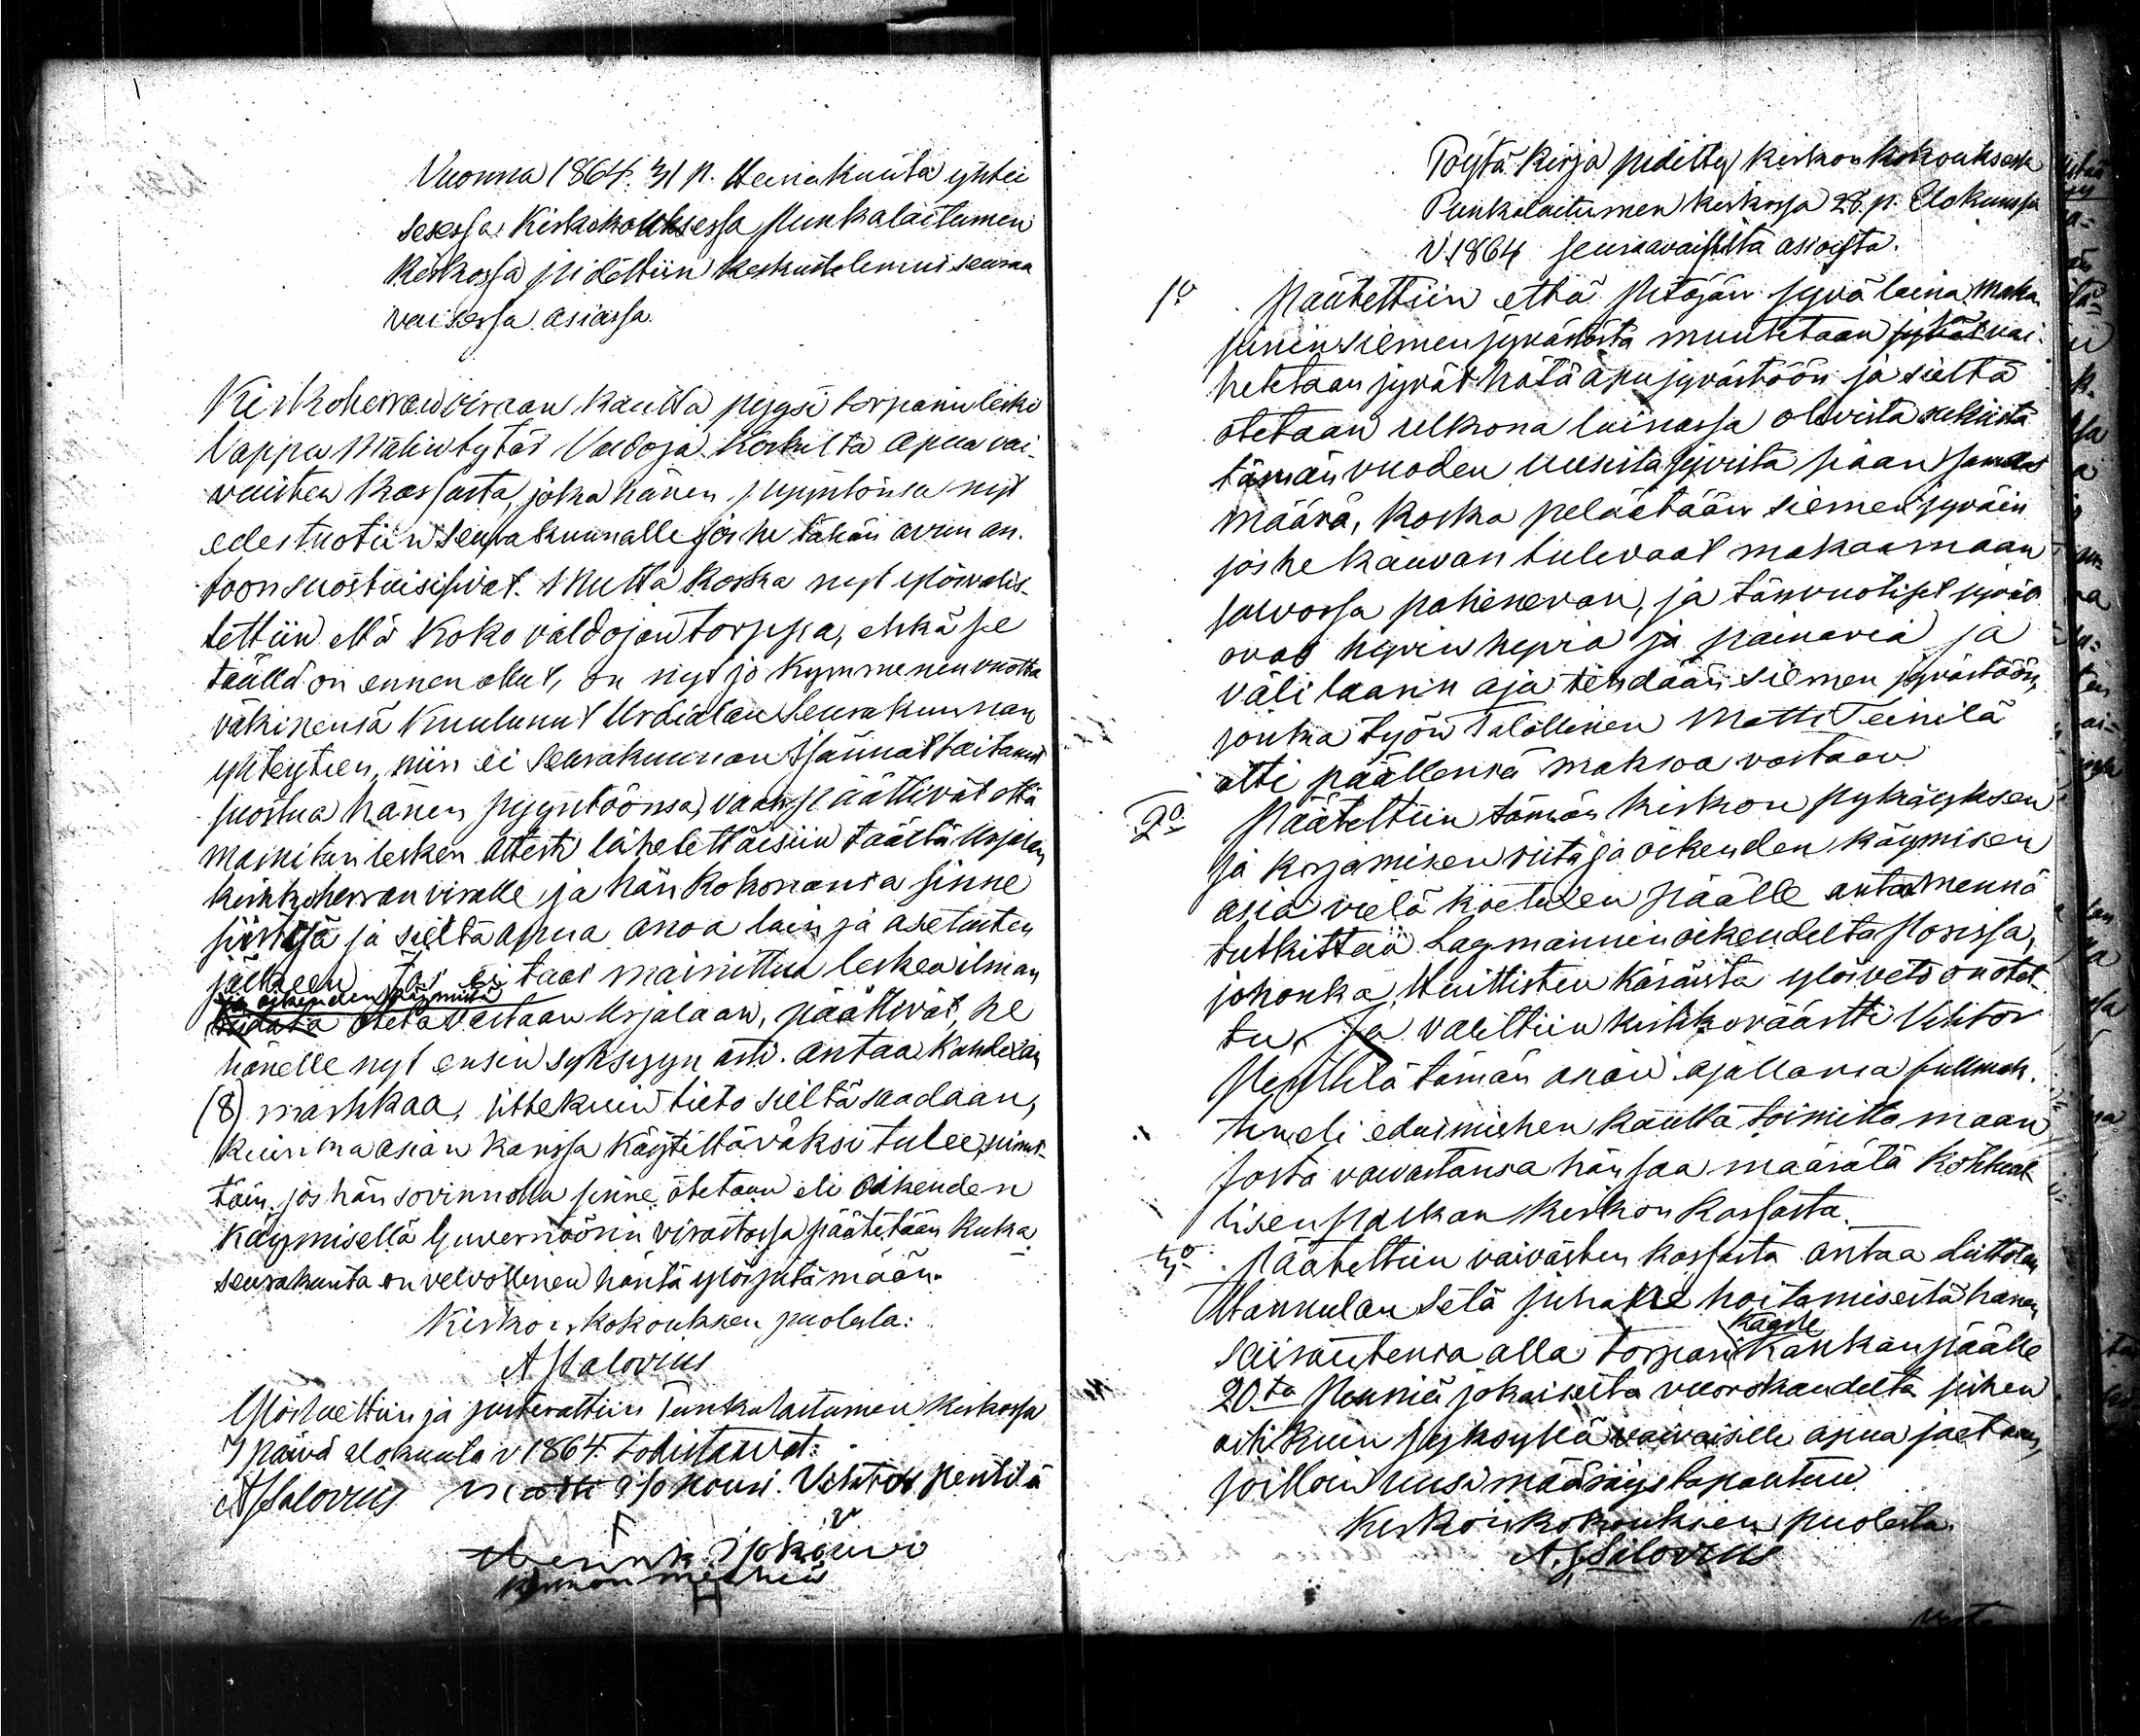 Vuonna 1864. 31 p. Heinakuuta yhtei
sesessa Kirkokouksessa Punkalaitumen
Kirkossa pidettiin keskustelemus seuraa
vaisessa asiassa.
Kirkoherran viraan kautta pyysi torparin leski
Vappu Matintytär Valdoja Korkilta apua vai-
vaisten Kassasta, joka hänen pyyntönsä nyt
edestuotiin Seurakunnalle jos he tähän avun an-
toon suostuisisivat. Mutta koska nyt ylösvalis-
tettiin että koko valdojan torppa, ehkä se
täällä on ennen ollut, on nyt jo kymmenen vuotta
väkinensä kuulunut Urdialan Seurakunnan
yhteyteen, niin ei Seurakunnan Isännät taitanut
suostua hänen pyyntöönsä, vaan päättivät että
mainitun lesken attesti lähetettäisiin täältä Urjalan
kirkkoherran viralle, ja hän kokonansa sinne
siirtyä ja sieltä apua anoa lain ja asetusten
jälkeen. Jos ei taas mainittua leskeä ilman
ja oikeuden käymistä
riidata oteta vastaan Urjalaan, päättivät he
hänelle nyt ensin syksyyn asti antaa Kahdexan
(8) markkaa, sittekuin tieto sieltä saadaan,
kuinma asian kanssa käytettäväksi tulee, nimit-
täin, jos hän sovinnolla sinne otetaan eli oikeuden
käymisellä Guvernöörin virastossa päätetään kuka
seurakunta on velvollinen häntä ylöspitämään.
Kirkonkokouksen puolesta:
A J Salovius
Ylösluettiin ja justerattiin Punkalaitumen Kirkossa
7 päivä elokuuta v 1864. todistaavat:
A J Salovius Matti Isokouri. Vihtor Pentilä
Henrik Isokouri
Pöytä Kirja pidetty kirkon kokouksessa
Punkalaitumen kirkossa 28. p. Elokuussa
V. 1864 seuraavaisista asioista.
1o. Päätettiin että pitäjän jyvä laina maka
siinin siemenjyvästöstä muutetaan jyvät vai-
hetetaan jyvät hätäapujyvästöön ja sieltä
otetaan ulkona lainassa olevista rukiista
tämän vuoden uusista jyvistä pään samdas
määrä, koska pelätään siemenjyväin
jos he kauvan tulevaat makaamaan
salvossa pahenevan, ja tämvuotiset jyvät
ovat hyvin hyviä ja painavia ja
väli laarin aja tehdään siemen jyvästöön,
jonka työn Talollinen Matti Teinilä
otti päällensä maksoa vastaan
2o. Päätettiin tämän kirkon pykäyksen
ja korjamisen riita ja oikeuden käymisen
asia vielä koetuxen päälle anta mennä
tutkittaa Lagmannin oikeudelta Porissa,
johonka Huittisten Käräistä ylösveto on otet-
tu, Ja valittiin kirkkoväärtti Vihtor
Penttilä tämän asian ajallansa fullmak-
tin eli edusmiehen kautta toimittamaan
Josta vaivastansa hän saa määrätä kohtual-
lisen palkan Kirkon Kassasta.
3o. Päätettiin vaivasten kassasta antaa Liittolan
Hannulan Setä Juha Ne hoitamisesta hänen
Kägrle
sairautensa alla torpari Kankanpäälle
20ta Penniä jokaiselta vuorokaudelta siihen
asti kuin syksyllä vaivaisille apua jaetaan,
jolloin uusi määräys tapahtuu.
Kirkonkokouksen puolesta.
A. J. Salovius